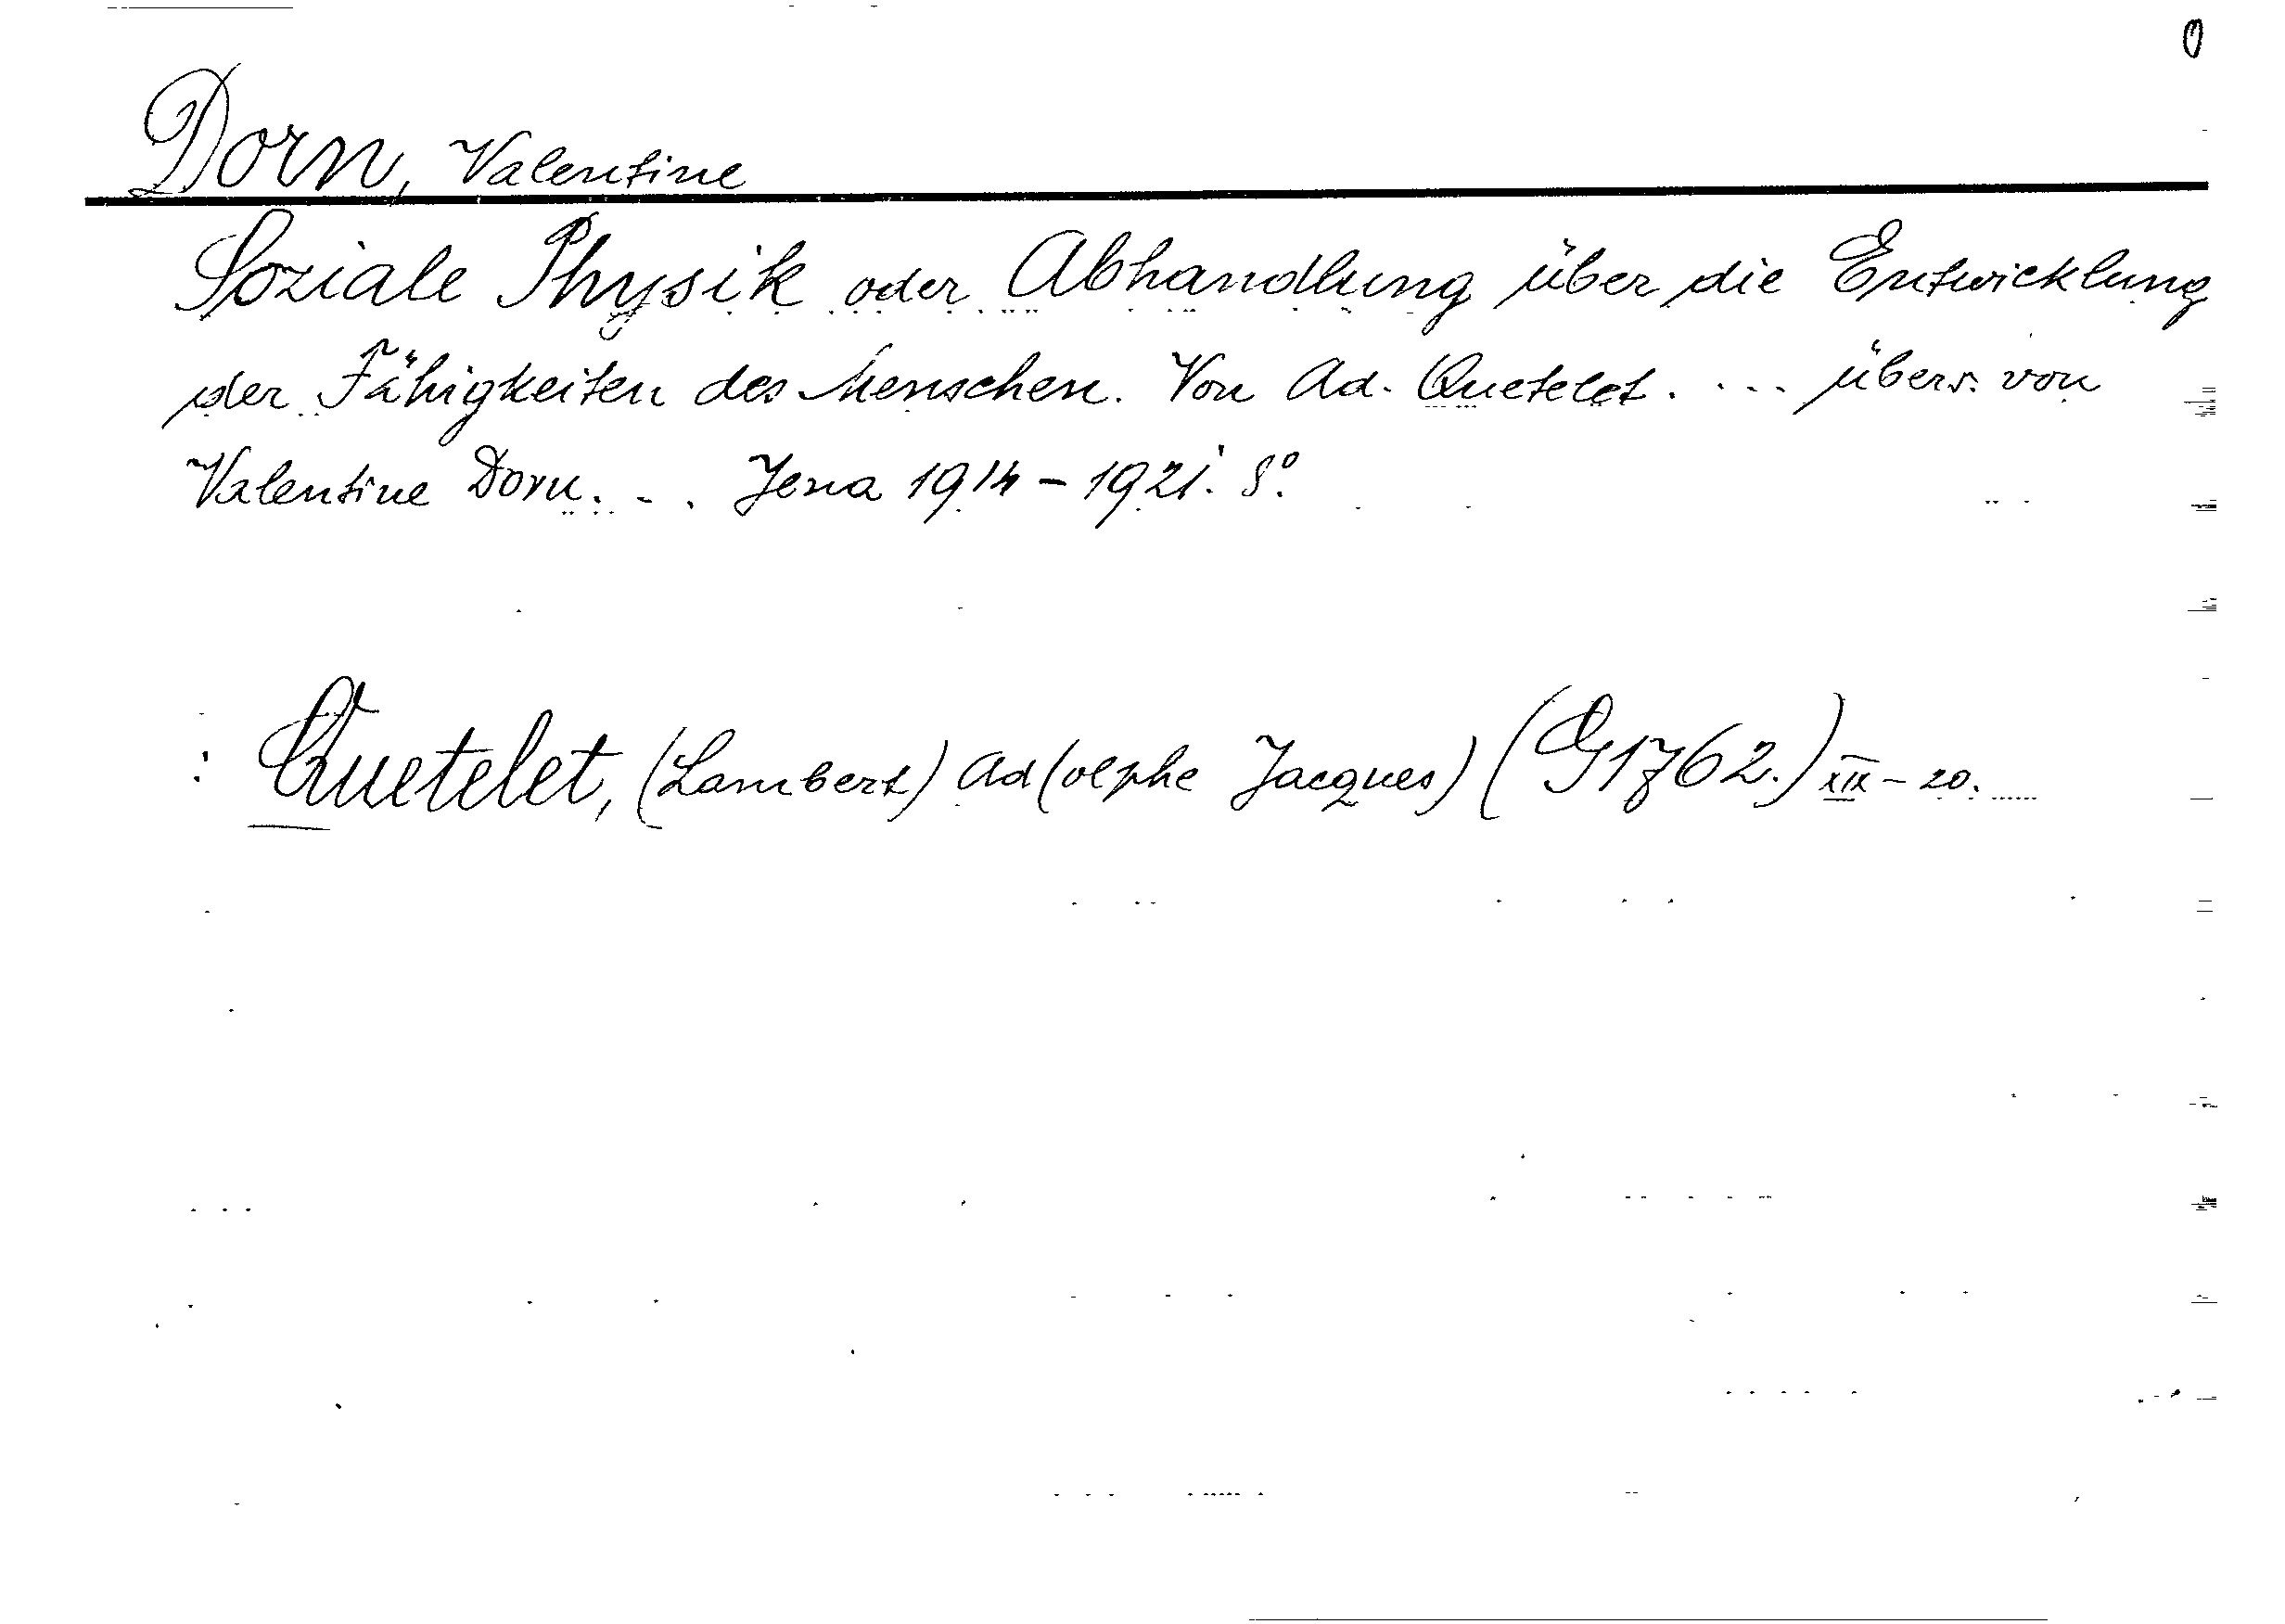 0
Dorn, Valentine
Soziale Physik oder Abhandlung über die Entwicklung
der Fähigkeiten des Menschen. Von Ad. Quetelet. ... übers. von
Valentine Dorn. .. Jena 1914-1921. 8°.
: Quetelet, (Lambert) Ad(olphe Jacques) (G1762.) XIX-20.